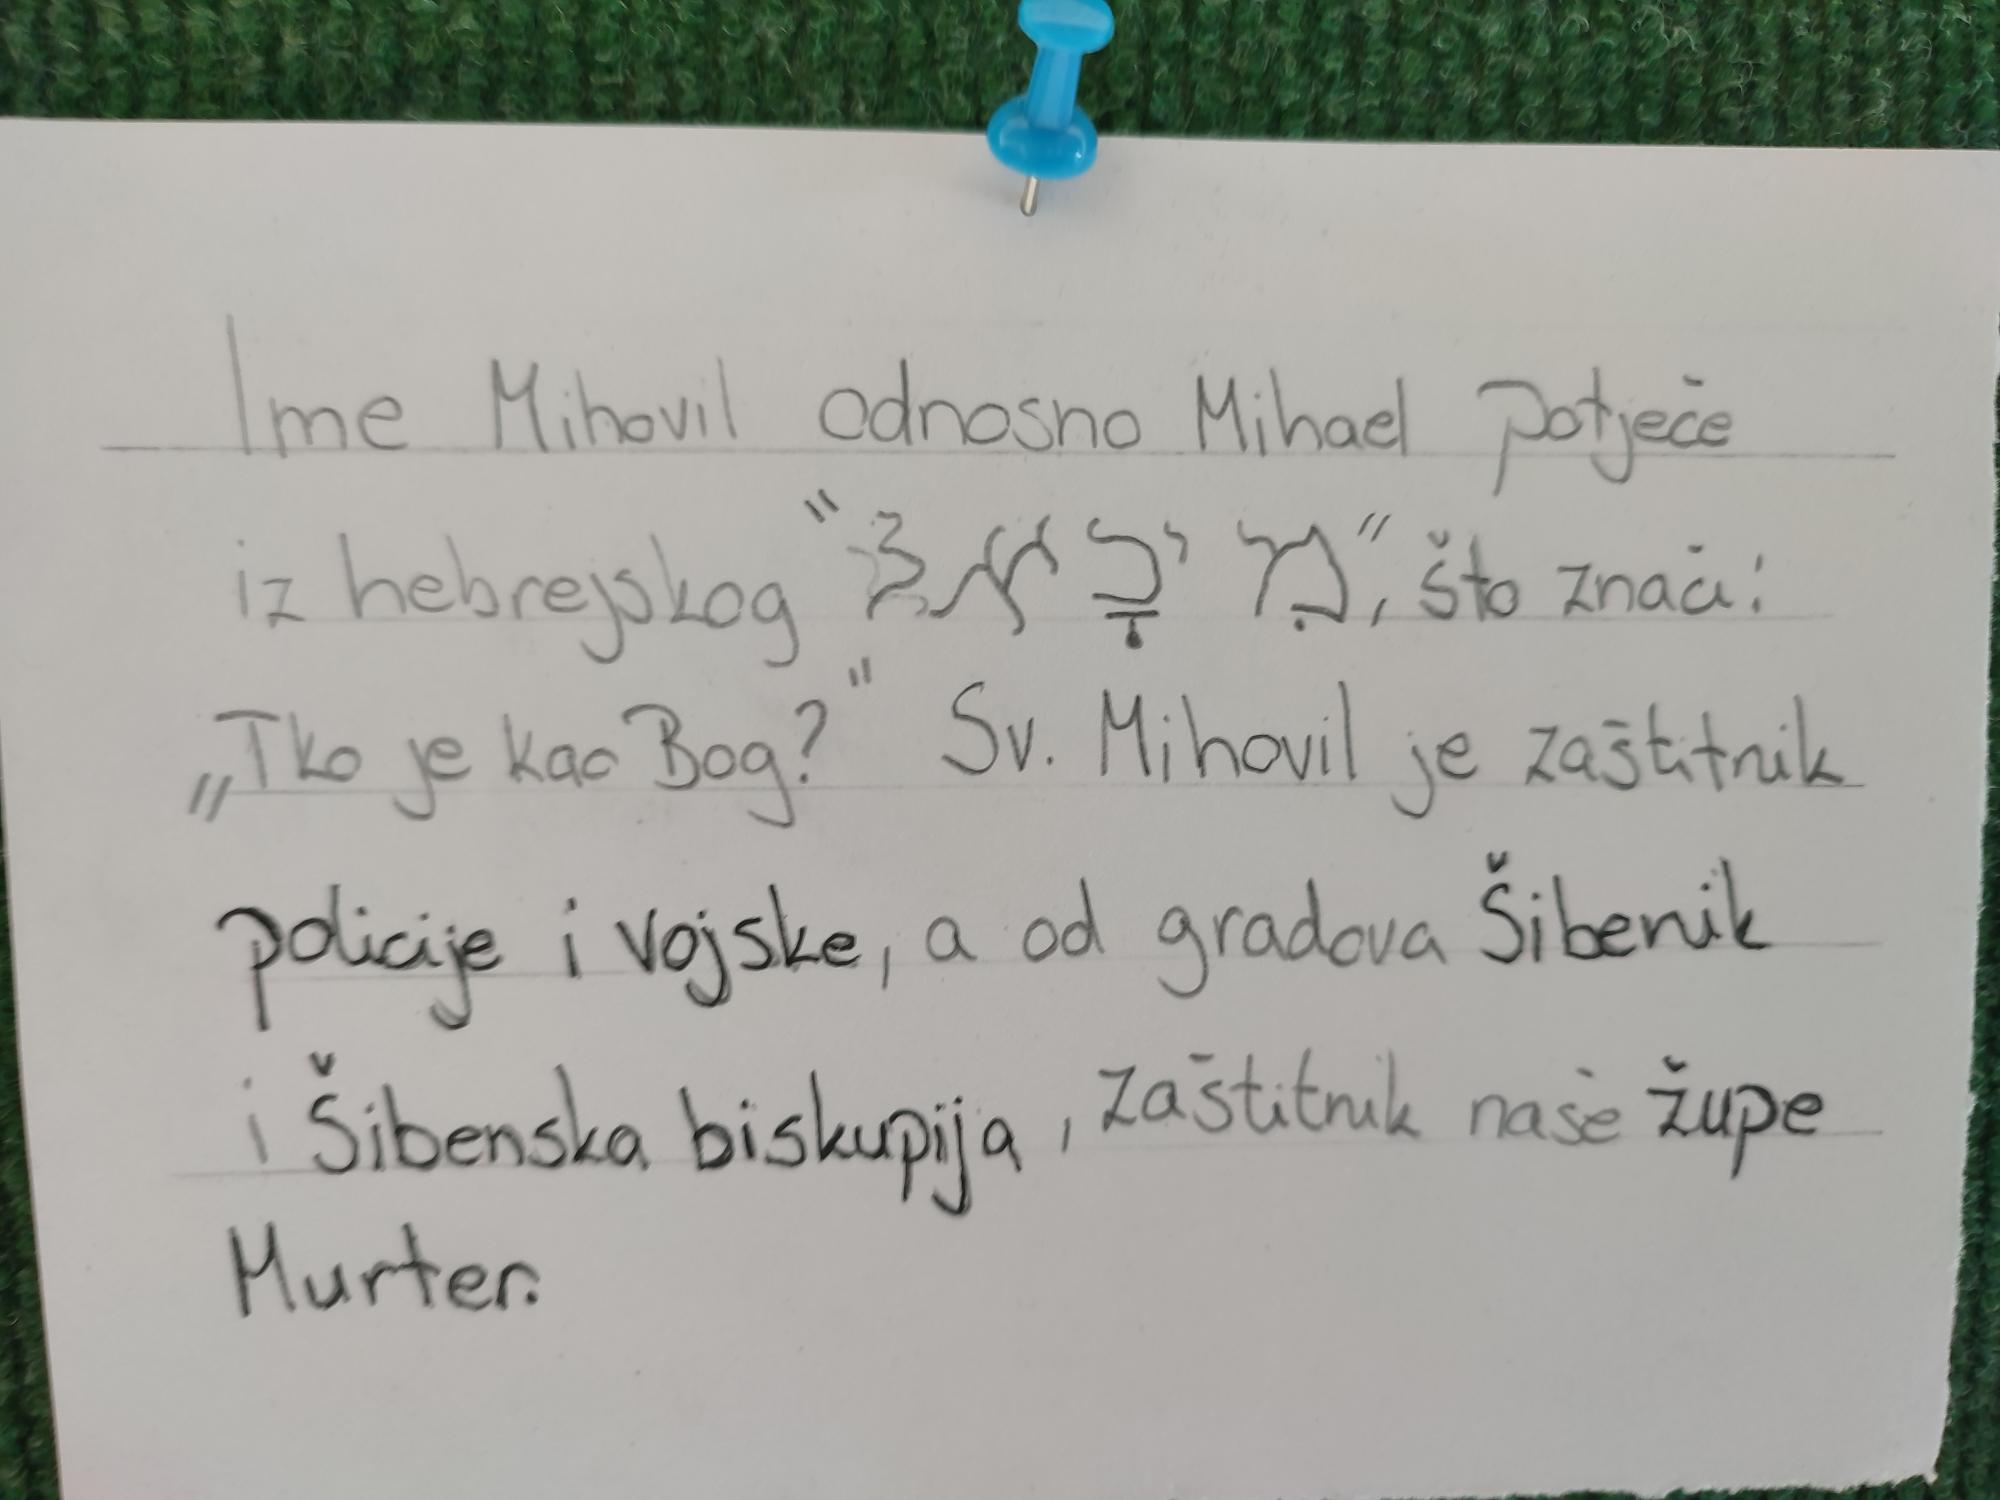 Ime Mihovil odnosno Mihael potječe
iz hebrejskog "מִיכָאל", što znači:
„Tko je kao Bog?" Sv. Mihovil je zaštitnik
policije i vojske, a od gradova Šibenik
i Šibenska biskupija, zaštitnik naše župe
Murter.